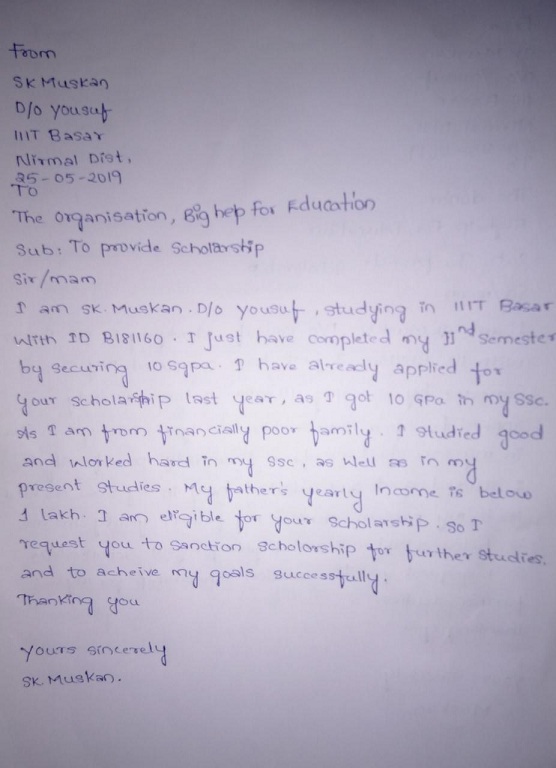 From
SK Muskan
D/o yousuf
IIIT Basar
Nirmal Dist,
25-05-2019
To
The organisation, Big help for Education
Sub: To provide Scholarship
Sir/mam
I am SK. Muskan. D/o yousuf, studying in IIIT Basar
With ID B181160. I just have completed my IInd Semester
by securing 10 sgpa. I have already applied for
your scholarship last year, as I got 10 GPA in my SSC.
I am from financially poor family. I studied good
and worked hard in my SSC, as well as in my
present studies. My father's yearly Income is below
1 lakh. I am eligible for your scholarship. So I
request you to sanction scholorship for further studies.
and to acheive my goals successfully.
Thanking you
yours sincerely
SK Muskan.